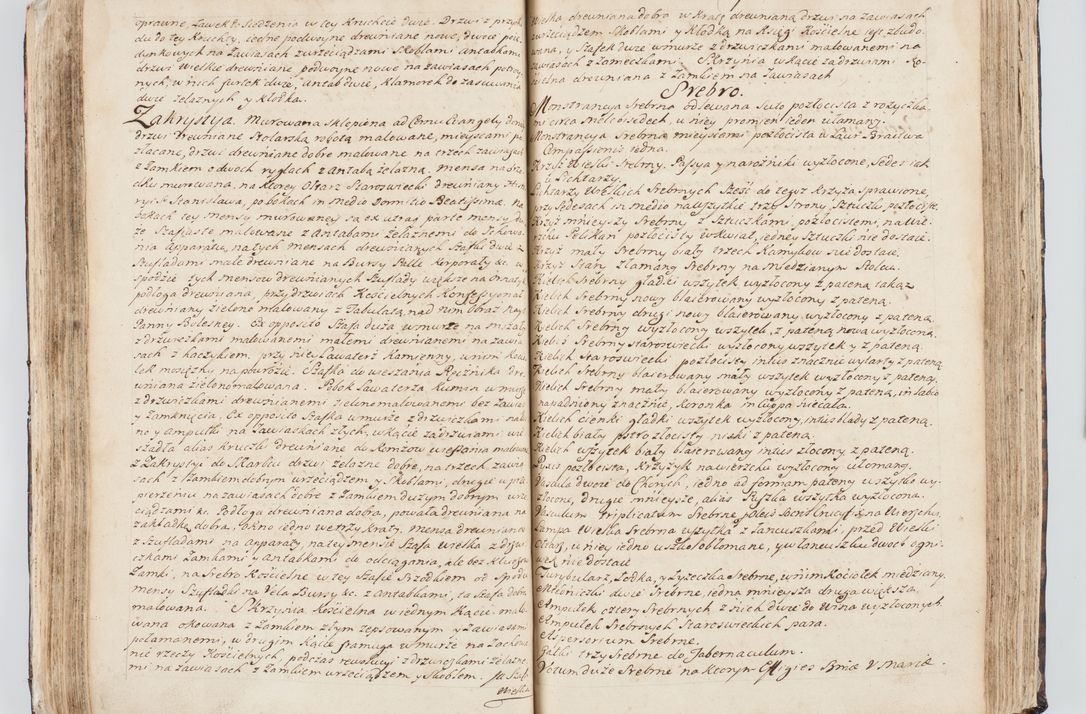 oprawne, Ławek & Siedzenia w tey Kruchcie dwie. Drzwi z przych
du do tey Kruchty, iedne podwoyne drewniane nowe, dwoie poie
dynkowych na Zawiasach z wrzeciądzami Skoblami antabkami
drzwi Wielkie drewniane podwoyne nowe na zawiasach potroy
nych, w nich furtek dwie, antab dwie, klamorek do zasuwania
dwie żelaznych y kłodka.
Zakrystya. Murowana Sklepiona ad Cornu Evangely do niey
drzwi Drewniane Stolarską robotą malowane, mieyscami po
złacane, drzwi drewniane dobre malowane na trzech zawiasach
z Zamkiem o dwoch ryglach z Antabą żelazną. Mensa na środ
ku murowana, na ktorey Ołtarz Staroswiecki drewniany
S. Stanisława, po bokach in medio Dormitio Beatissimæ, na
bokach tey mensy murowaney są ex utraq parte mensy du
że Szafiaste malowane z Antabami żelaznemi do Schowa
nia Apparatu, na tych mensach drewnianych Szafki dwie z
Szufladami małe drewniane na Bursy Palle Korporały &c. a
spodzie tych mensow drewnianych Szuflady większe na ornaty
podłoga drewniana, przy drzwiach Kościelnych Konfessyonał
drewniany zielono malowany z Tabulatą, nad nim obraz Nayś
Panny Bolesney. Ex opposito Szafa duża w murze na mszały
z drzwiczkami malowanemi małemi drewnianemi na zawia
sach z haczykiem. przy niey Lawaterz Kamienny, w nim Kocio
łek mosiężny na powrozie. Szafka do wieszania Ręcznika dre
wniana zielono malowana. Pobok Lawaterza Kumin w murze
z drzwiczkami drewnianemi zielono malowanemi bez Zawias
y Zamknięcia. Ex opposito Szafka w murze z drzwiczkami mało
no y ampułki na Zawiaskach złych, w kącie za drzwiami wi
szadła alias kruczki drewniane do Komżow wieszania malowane
z Zakrystyi do Skarbcu drzwi żelazne dobre, na trzech zawia
sach z Zamkiem dobrym wrzeciądzem y Skoblami, drugie w prze
pierzeniu na zawiasach dobre z Zamkiem dużym dobrym wrze
ciądzami &c. Podłoga drewniana dobra, powała drewniana na
zakładkę dobra, okno iedno we trzy kraty, mensa drewniana
z Szufladami na apparaty, na tey mensie Szafa wielka z drzwi
czkami Zamkami y antabkami do odciągania, ale bez kluczow
Zamki, na Srebro Kościelne w tey Szafie Przodkiem od Spodu
mensy Szufladki na Vela Bursy &c. z antabkami, ta Szafa dobra
malowana. Skrzynia Kościelna w iednym Kącie, malo
wana okowana z Zamkiem złym zepsowanym y Zawiasami
połamanemi, w drugim Kącie framuga w murze na Zachowa
nie rzeczy Kościelnych, podczas rewolucyi z drzwiczkami żelazne
mi na zawiasach z Zamkiem wrzeciądzem y Skoblem. Ta Szafa
wielka
Wielka drewniana dobra w Kratę drewnianą drzwi na zawiasach
wrzeciądzem Skoblami y Kłodką na Xięgi Kościelne iest zbudo
wana, y Szafek dwie w murze z drzwiczkami malowanemi na
zawiasach z Zameczkami. Skrzynia w kącie za drzwiami Ko
ścielna drewniana z Zamkiem na Zawiasach
Srebro.
Monstrancya Srebrna odlewana suto pozłocista z rożyczka
mi circa Melchisedech, u niey promien ieden ułamany.
Monstrancya Srebrna mieyscami pozłocista w Laur Bractwa
Compassionis iedna.
Krzyż Wielki Srebrny, Passya y narożniki wyzłocone, Sedes iak
u Lichtarzy.
Lichtarzy Wielkich Srebrnych Sześć do tegoż Krzyża sprawione,
przy Sedesach in medio na wszystkie trzy Strony Sztuczki pozłociste.
Krzyż mnieyszy Srebrny, z Sztuczkami pozłocistemi, na wie
rzchu Pelikan pozłocisty w kwiat, iedney Sztuczki nie dostaie.
Krzyż mały Srebrny biały trzech Kamykow nie dostaie.
Krzyż Stary Złamany Srebrny na Miedzianym Stolcu.
Kielich Srebrny gładki wszytek wyzłocony z pateną takąż
Kielich Srebrny nowy blaserowany wyzłocony z pateną.
Kielich Srebrny drugi nowy blaserowany, wyzłocony z pateną.
Kielich Srebrny wyzłocony wszytek, z pateną nową wyzłoconą.
Kielich Srebrny staroswiecki wyzłocony wszytek y z pateną.
Kielich Staroswiecki pozłocisty intus znacznie wytarty z pateną
Kielich Srebrny blaserowany mały wszytek wyzłocony z pateną,
Kielich Srebrny mały blaserowany wyzłocony z pateną, in labio
napadniony znacznie, Koronka in Cuppa sieciała.
Kielich cienki gładki wszytek wyzłocony, intus blady z pateną.
Kielich biały pstro złocisty niski z pateną.
Kielich wszytek biały blaserowany intus złocony z pateną.
Puszka pozłocista, Krzyżyk na wierzchu wyzłocony ułomany.
Vascula dwoie do Chorych, iedno ad formam pateny wszytko wy
złocone, drugie mnieysze, alias Puszka wszytka wyzłocona.
Vasculum triplicatum Srebrne, polus Sacris Crucifixus na Wierzchu.
Lampa Wielka Srebrna wszytka z Łancuszkami, przed Wielki
Ołtarz, u niey iedno uszko obłomane, y w łancuszku dwoch ogni
wek nie dostaie
Turybularz, Łodka, y Łyżeczka Srebrne, w nim Kociałek miedziany.
Miedniczki dwie Srebrne, iedna mnieysza druga większa.
Ampułek cztery Srebrnych z nich dwie do Wina wyzłoconych.
Ampułek Srebrnych Staroswieckich para.
Aspersorium Srebrne.
Gałki trzy Srebrne do Tabernaculum.
Votum duże Srebrne na ktorym Effigies Smæ V. Mariæ.